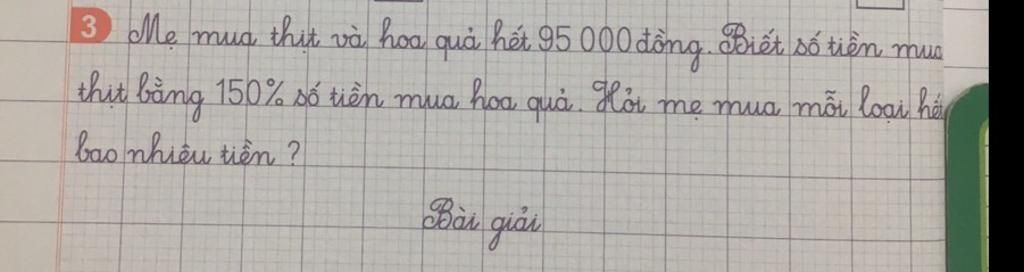 3 Mẹ mua thịt và hoa quả hết 95 000 đồng. Biết số tiền mua
thịt bằng 150% số tiền mua hoa quả. Hỏi mẹ mua mỗi loại hết
bao nhiêu tiền ?
Bài giải